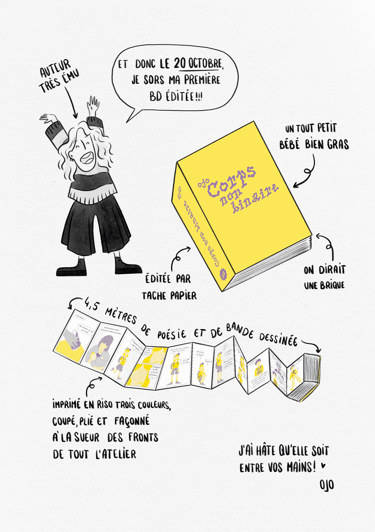 AUTEUR
TRÈS ÉMU
ET DONC LE 20 OCTOBRE,
JE SORS MA PREMIÈRE
BD ÉDITÉE!!!
UN TOUT PETIT
BÉBÉ BIEN GRAS
ojo
Corps
non
binaire
ojo Corps non binaire
ÉDITÉE PAR
TACHE PAPIER
ON DIRAIT
UNE BRIQUE
4,5 MÈTRES DE POÉSIE ET DE BANDE DESSINÉE
IMPRIMÉ EN RISO TROIS COULEURS,
COUPÉ, PLIÉ ET FAÇONNÉ
À LA SUEUR DES FRONTS
DE TOUT L'ATELIER
J'AI HÂTE QU'ELLE SOIT
ENTRE VOS MAINS! ♥
OJO